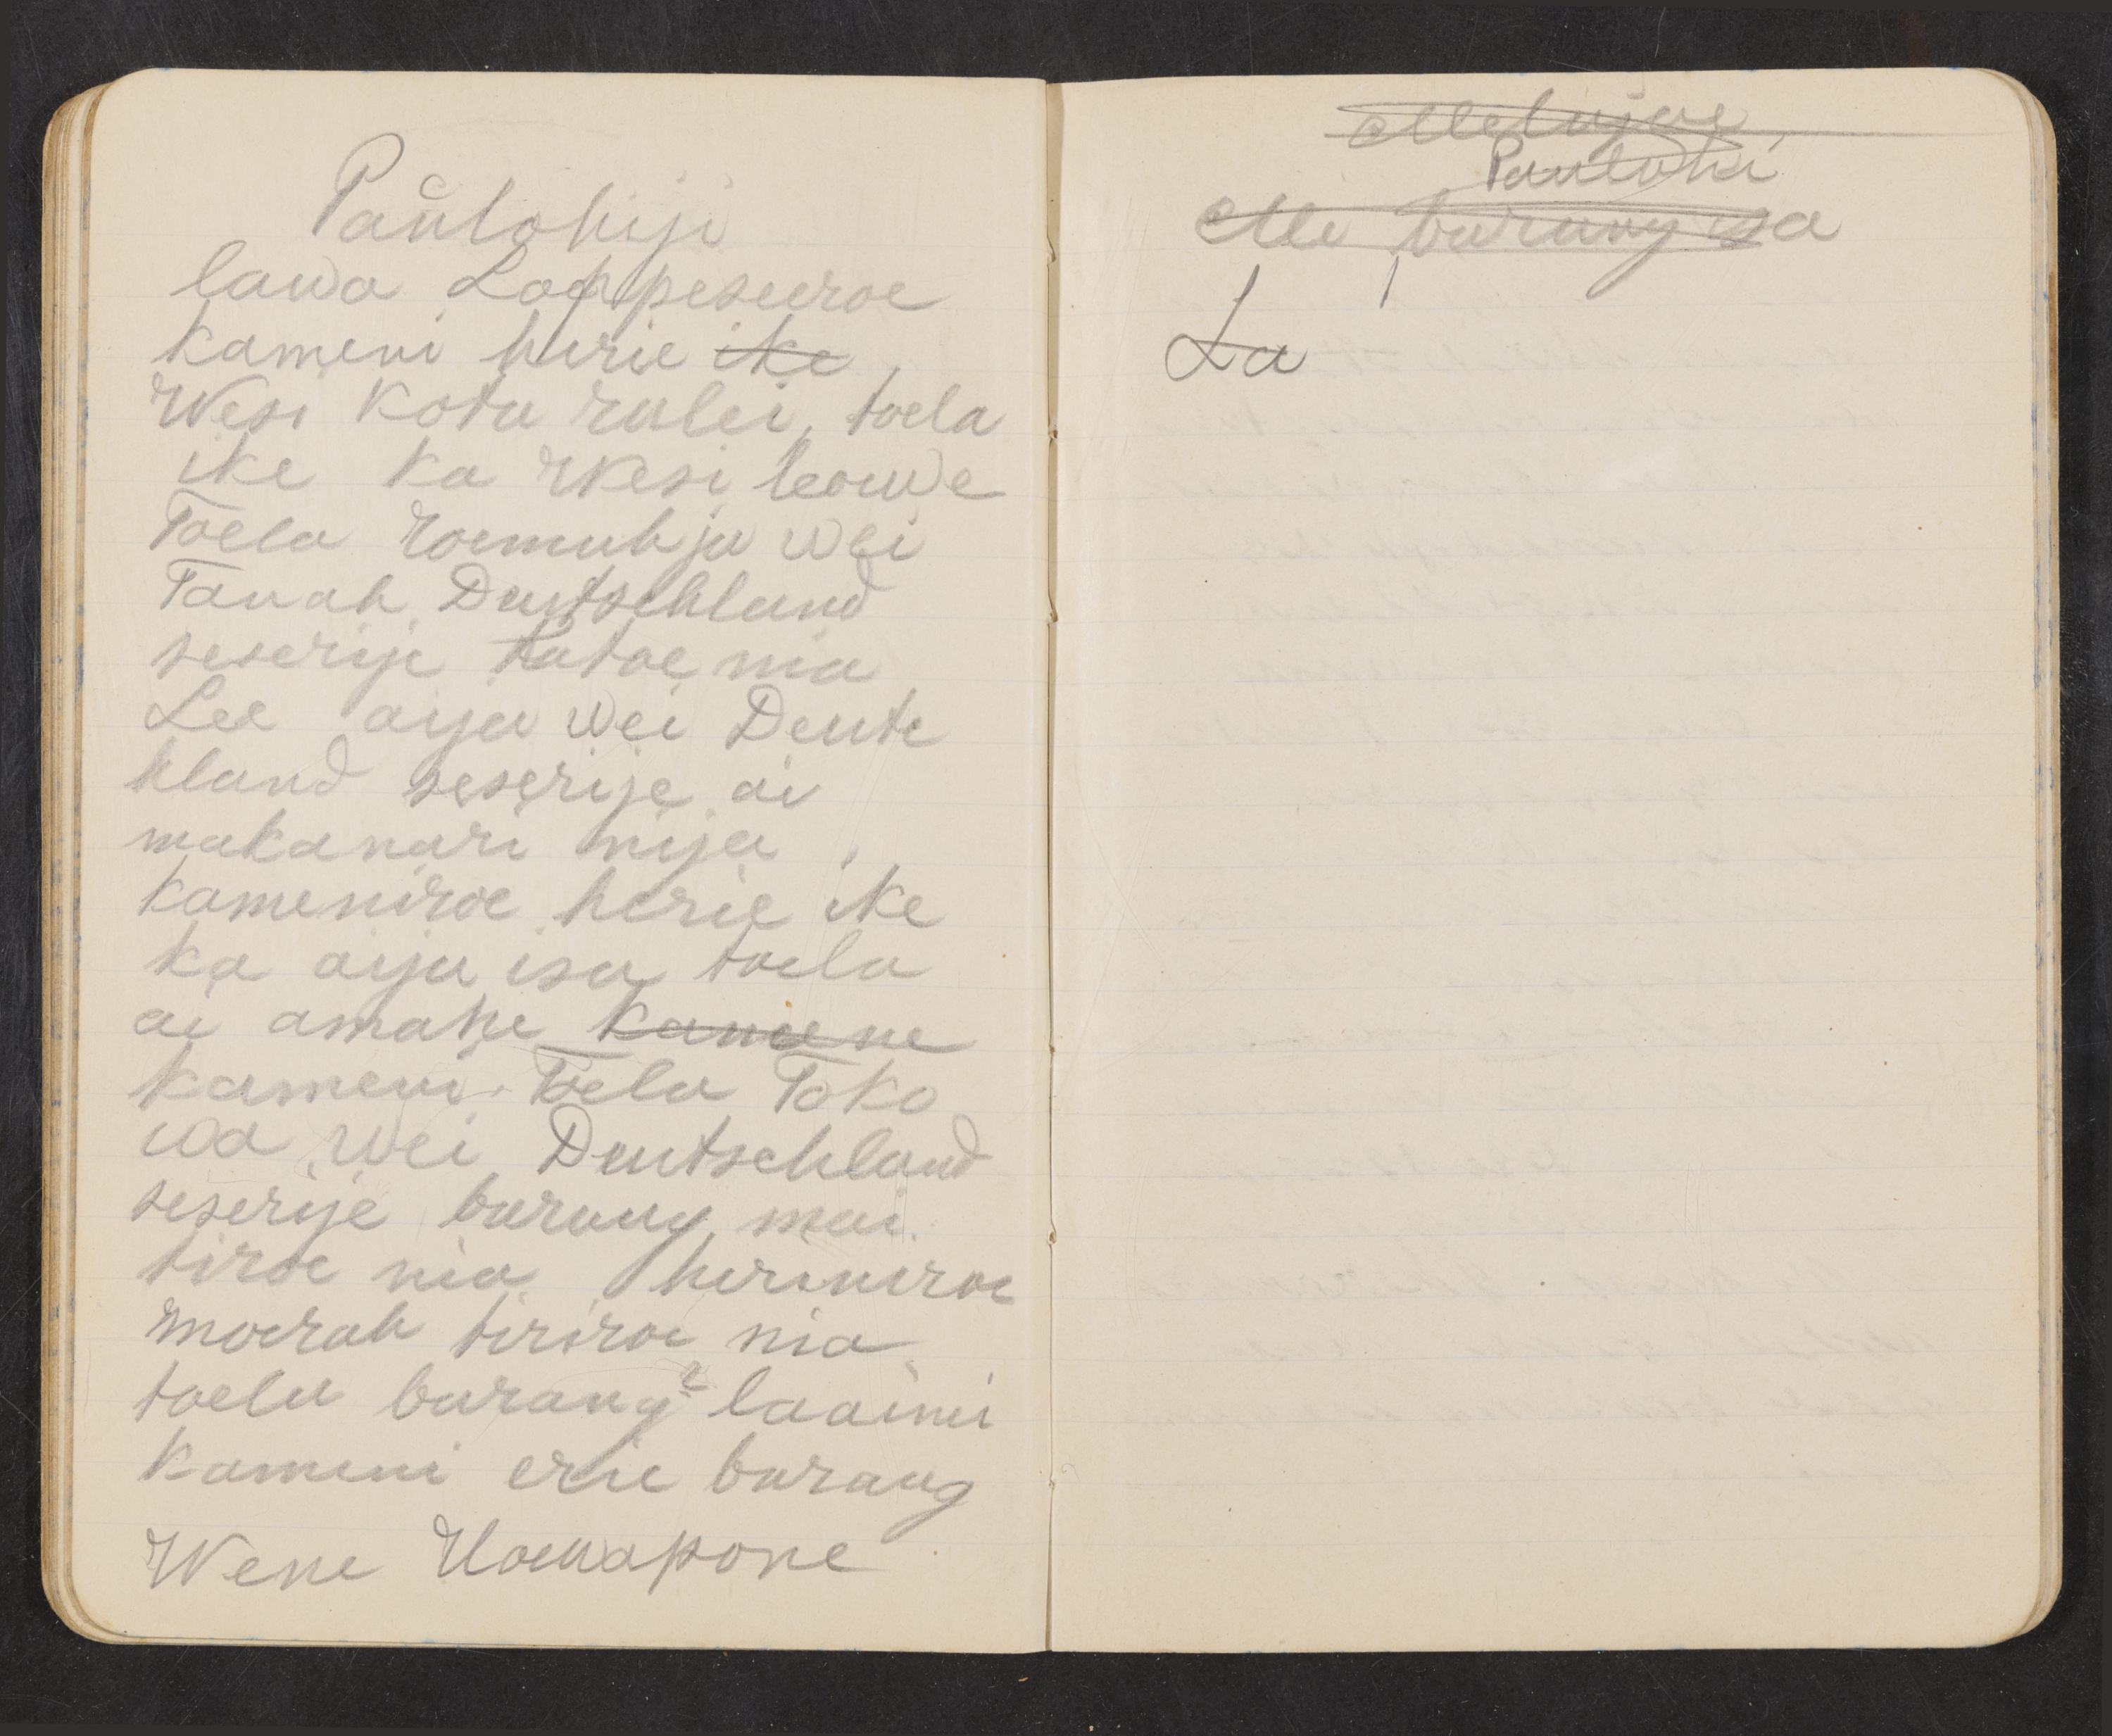 Paŭlohiji
lawa Loppeseeroe
kameni herie ~~ike~~
Wesi Kota rulei, toela
ike ka Wesi leowe
Toela roemah ja wei
Tanah Deutschland
seserije tatoe nia
Lee aija wei Deutc
hland seserije ai
makanari nija
kameniroe herie ike
ka aija isa toela
ai amahe ~~kamene~~
kameni. Toela Toko
wa wei Deutschland
seserije barang mai
tiroe nia heriniroe
moerah tiriroe nia
toela barang² laaini
kameni erie barang
Wene Uoewapone
~~Paulohi~~
~~barang isa~~
La